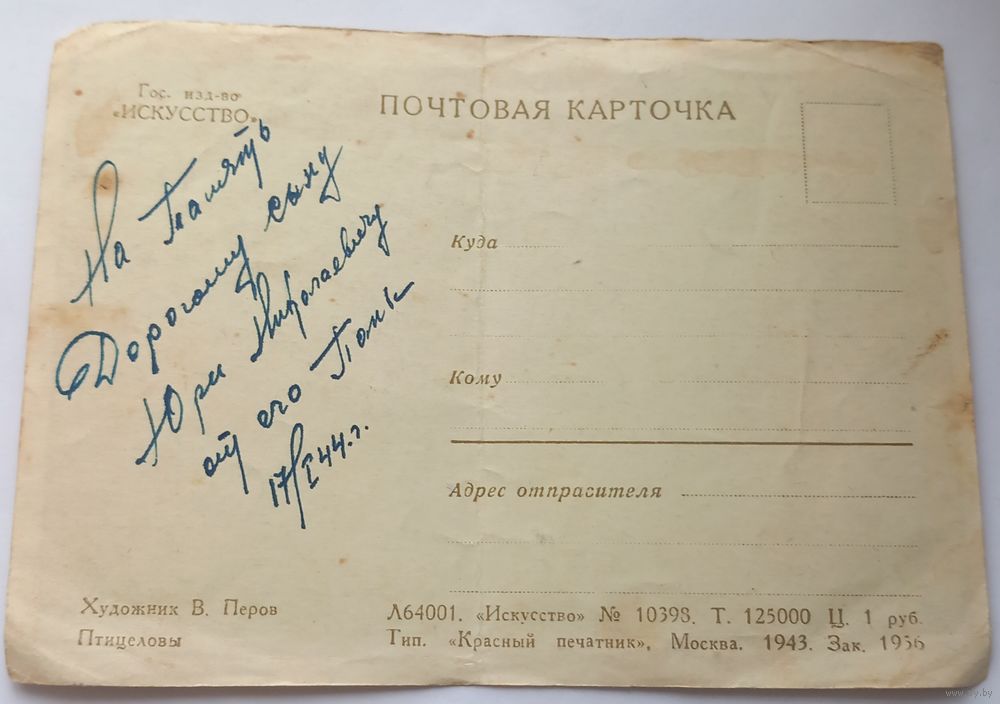 Гос. изд-во
«ИСКУССТВО»
ПОЧТОВАЯ КАРТОЧКА
На Память
Дорогому сыну
Юри Николаевичу
от его
17/I 44 г.
Куда
Кому
Адрес отправителя
Художник В. Перов
Птицеловы
Л64001. «Искусство» № 10398. Т. 125000 Ц. 1 руб.
Тип. «Красный печатник», Москва. 1943. Зак. 1956